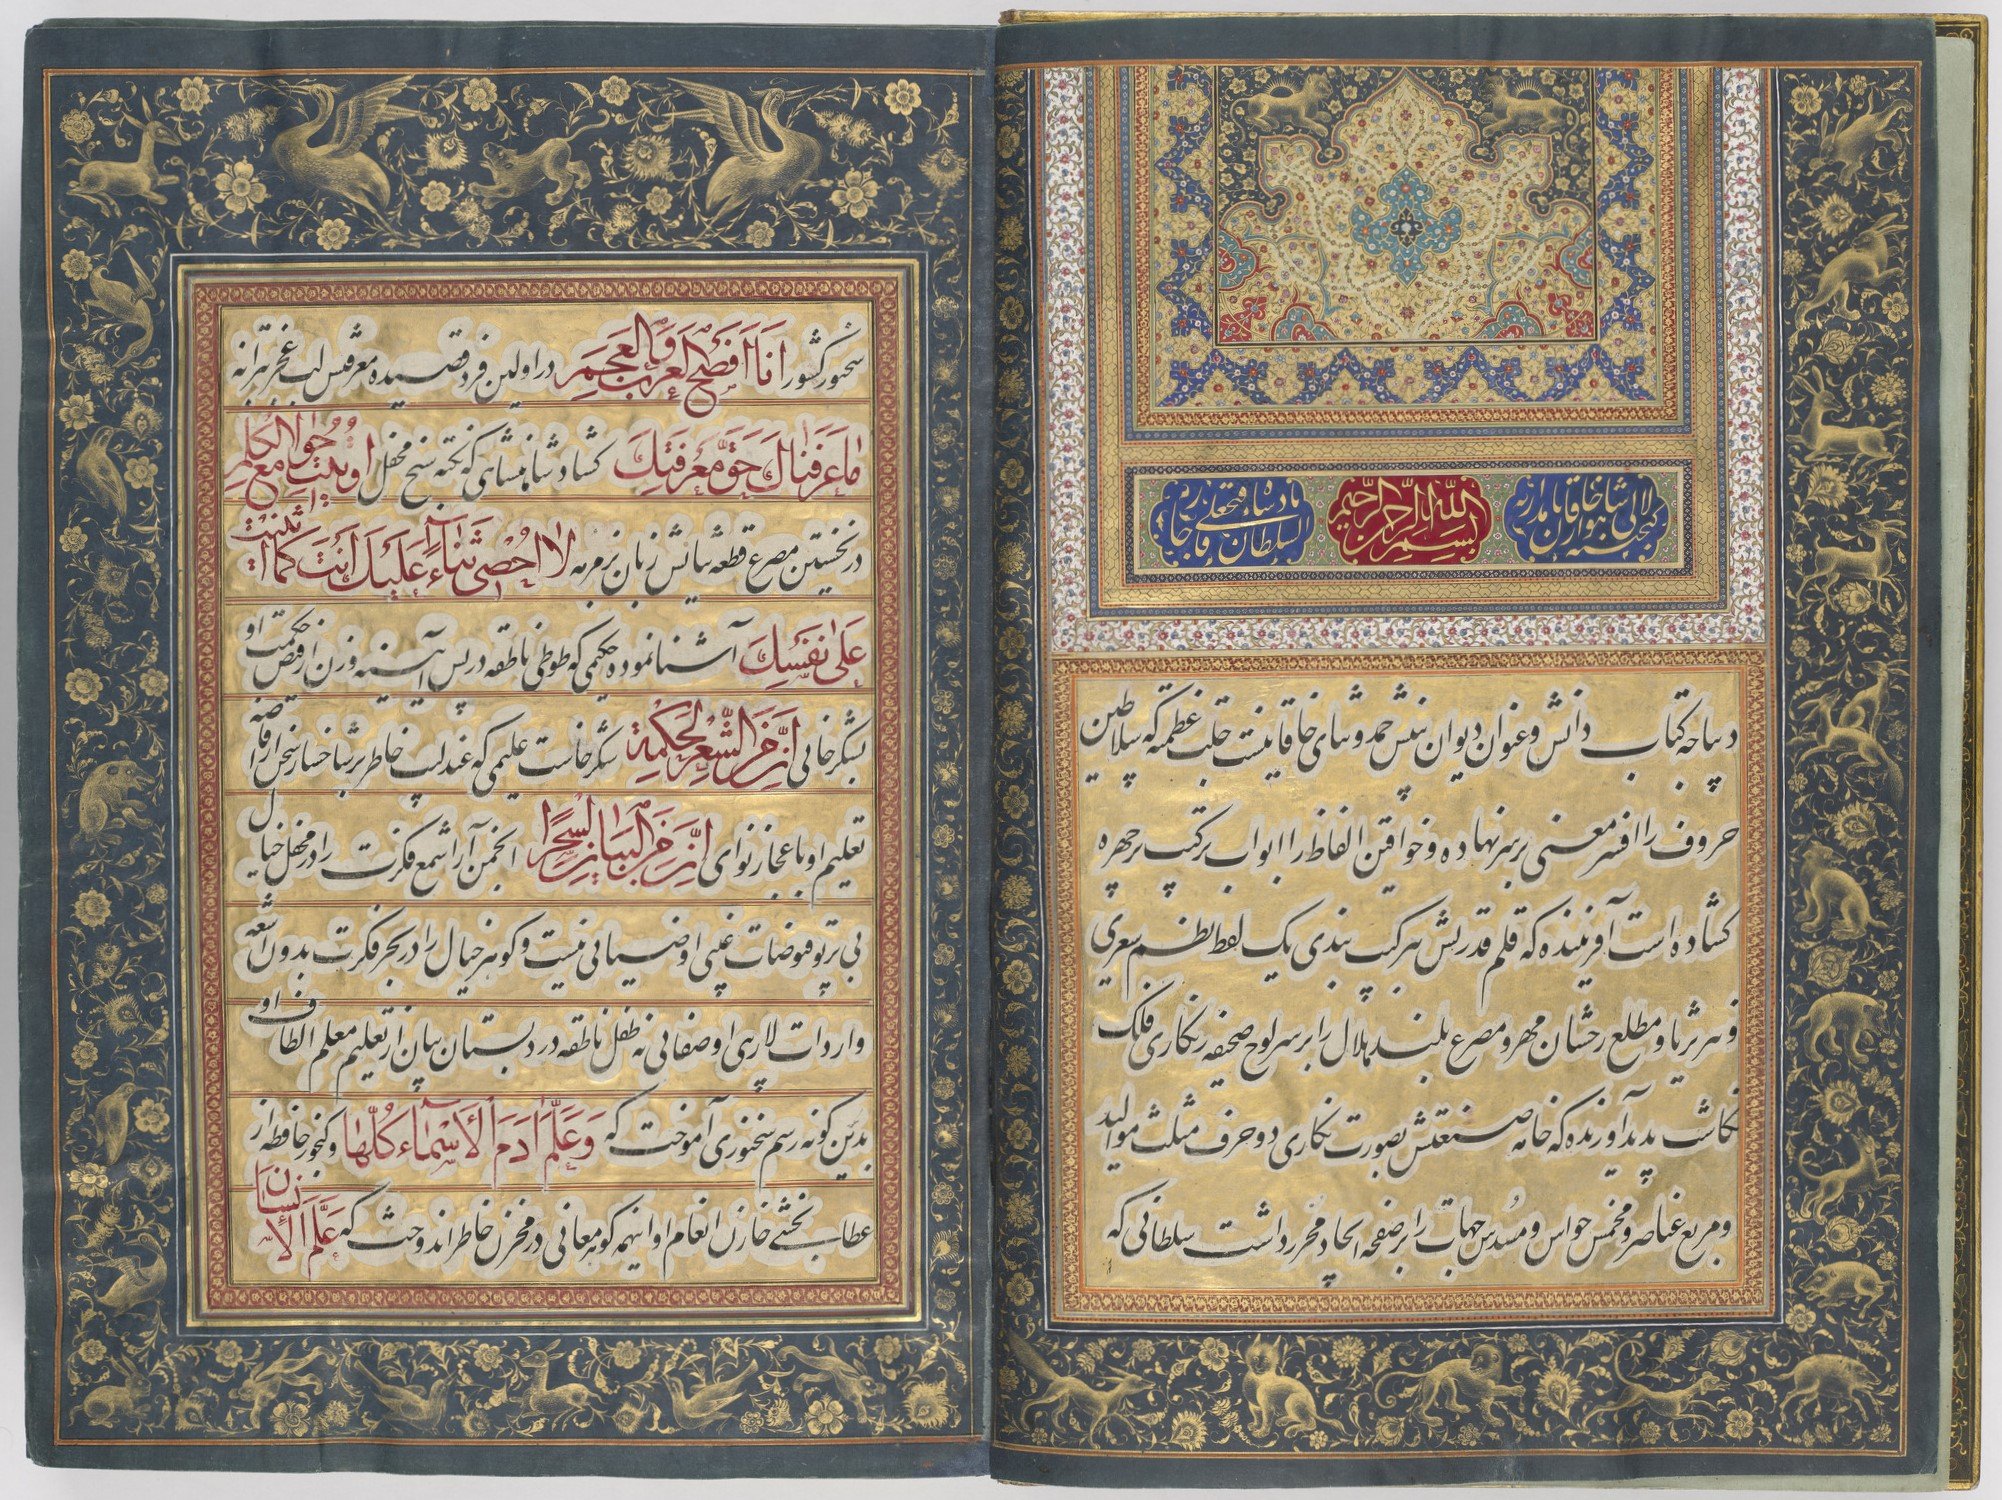 گنجینه لالی شاهوار خاقان نامدار
بسم الله الرحمن الرحیم
پادشاه فتحعلی السلطان قاجار
دیباچه کتاب دانش و عنوان دیوان بینش حمد و ثنای خاقانیست جلت عظمته که سلاطین
حروف را افسر معنی بر سر نهاده و خواقین الفاظ را ابواب ترکیب بر چهره
کشاده است آفریننده که قلم قدرتش بترکیب بندی یک لفظ نظم شعری
و نثر ثریا و مطلع رخشان مهر و مصرع بلند هلال را بر سر لوح صحیفه زنکاری فلک
نکاشت پدید آورنده که خامه صنعتش بصورت نکاری دو حرف مثلث موالید
و مربع عناصر و مخمس حواس و مسدس جهات را بر صفحه ایجاد محرر داشت سلطانی که
سخنور کشور اَنَا اَفْصَحُ العَرَبِ وَالعَجَمِ در اولین فرد قصیده معرفتش لب عجز بترانه
مَا عَرَفْنَاكَ حَقَّ مَعْرِفَتِكَ کشاد شاهنشاهی که نکته سنج محفل اُوتِيتُ جَوَامِعَ الْكَلِمِ
در نخستین مصرع قطعه ثنایش زبان بزمزمه لَا اُحْصِي ثَنَاءً عَلَيْكَ اَنْتَ كَمَا اَثْنَيْتَ
عَلَى نَفْسِكَ آشنا نموده حکیمی که طوطی ناطقه در پس آیینه وزن از فیض حکمت او
بشکرخائی اِنَّ مِنَ الشِّعْرِ لَحِكْمَةً شکرخاست علیمی که عندلیب خاطر بر شاخسار سخن از افاضه
تعلیم او باعجاز نوای اِنَّ مِنَ البَيَانِ لَسِحْرًا انجمن آرا شمع فکرت را در محفل خیال
بی پرتو فیوضات غیبی او ضیائی نیست و کوهر خیال را در بحر فکرت بدون اشعه
واردات لاریبی او صفائی نه طفل ناطقه در دبستان بیان از تعلیم معلم الطاف او
بدین کونه رسم سخنوری آموخت که وَعَلَّمَ اٰدَمَ الْاَسْمَاءَ كُلَّهَا و کنجور حافظه از
عطا بخشی خازن انعام او اینهمه کوهر معانی در مخزن خاطر اندوخت که عَلَّمَ الْاِنْسَانَ